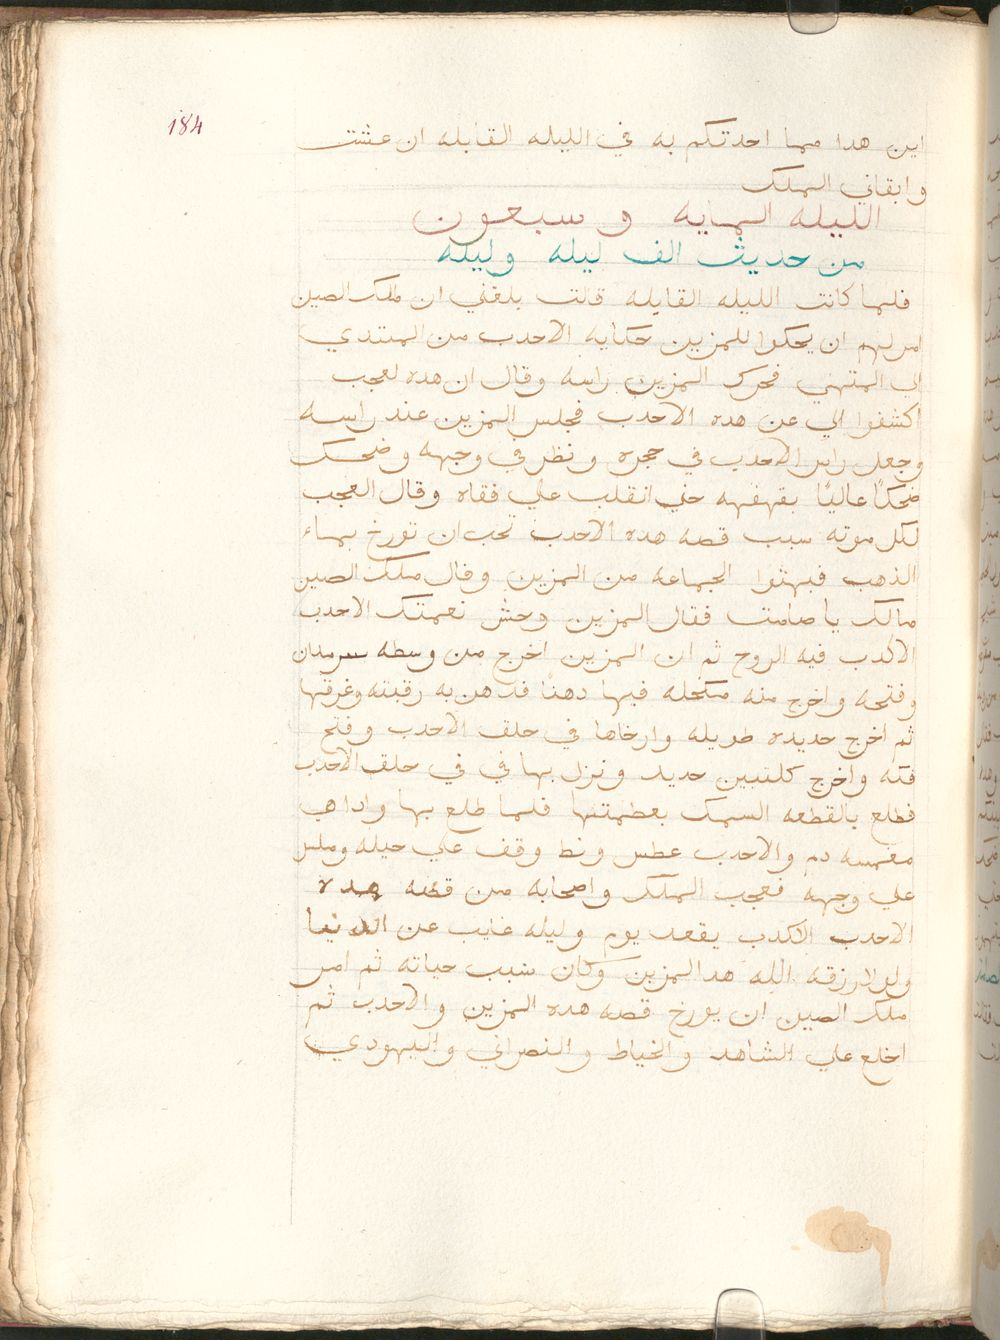 184
اين هدا مما احدتكم به في الليله القابله ان عشت
وابقاني الملك
الليله المايه وسبعون
من حديث الف ليله وليله
فلما كانت الليله القابله قالت بلغني ان ملك الصين
امر لهم ان يحكوا للمزين حكايه الاحدب من المبتدي
الي المنتهي فحرك المزين راسه وقال ان هده لعجب
اكشفوا لي عن هده الاحدب فجلس المزين عند راسه
وجعل راس الاحدب في حجره ونظر في وجهه وضحك
ضحكًا عاليًا بقهقهه حتي انقلب علي قفاه وقال العجب
لكل موته سبب قصه هده الاحدب تجب ان تورخ بماء
الذهب فبهتوا الجماعه من المزين وقال ملك الصين
مالك يا صامت فقال المزين وحش نعمتك الاحدب
الاكدب فيه الروح ثم ان المزين اخرج من وسطه سرمدان
وفتحه واخرج منه مكحله فيها دهنًا فدهن به رقبته وعرقها
ثم اخرج حديده طويله وارخاها في حلق الاحدب وفتح
فكه واخرج كلبتين حديد ونزل بها في في حلق الاحدب
فطلع بالقطعه السمك بعظمتها فلما طلع بها واداهي
مغمسه دم والاحدب عطس ونط وقف علي حيله وملس
علي وجهه فعجب الملك واصحابه من قصه هده
الاحدب الاكدب يقعد يوم وليله غايب عن الدنيا
ولولا رزقه الله هدا المزين وكان سبب حياته ثم امر
ملك الصين ان يورخ قصه هده المزين والاحدب ثم
اخلع علي الشاهد والخياط والنصراني واليهودي